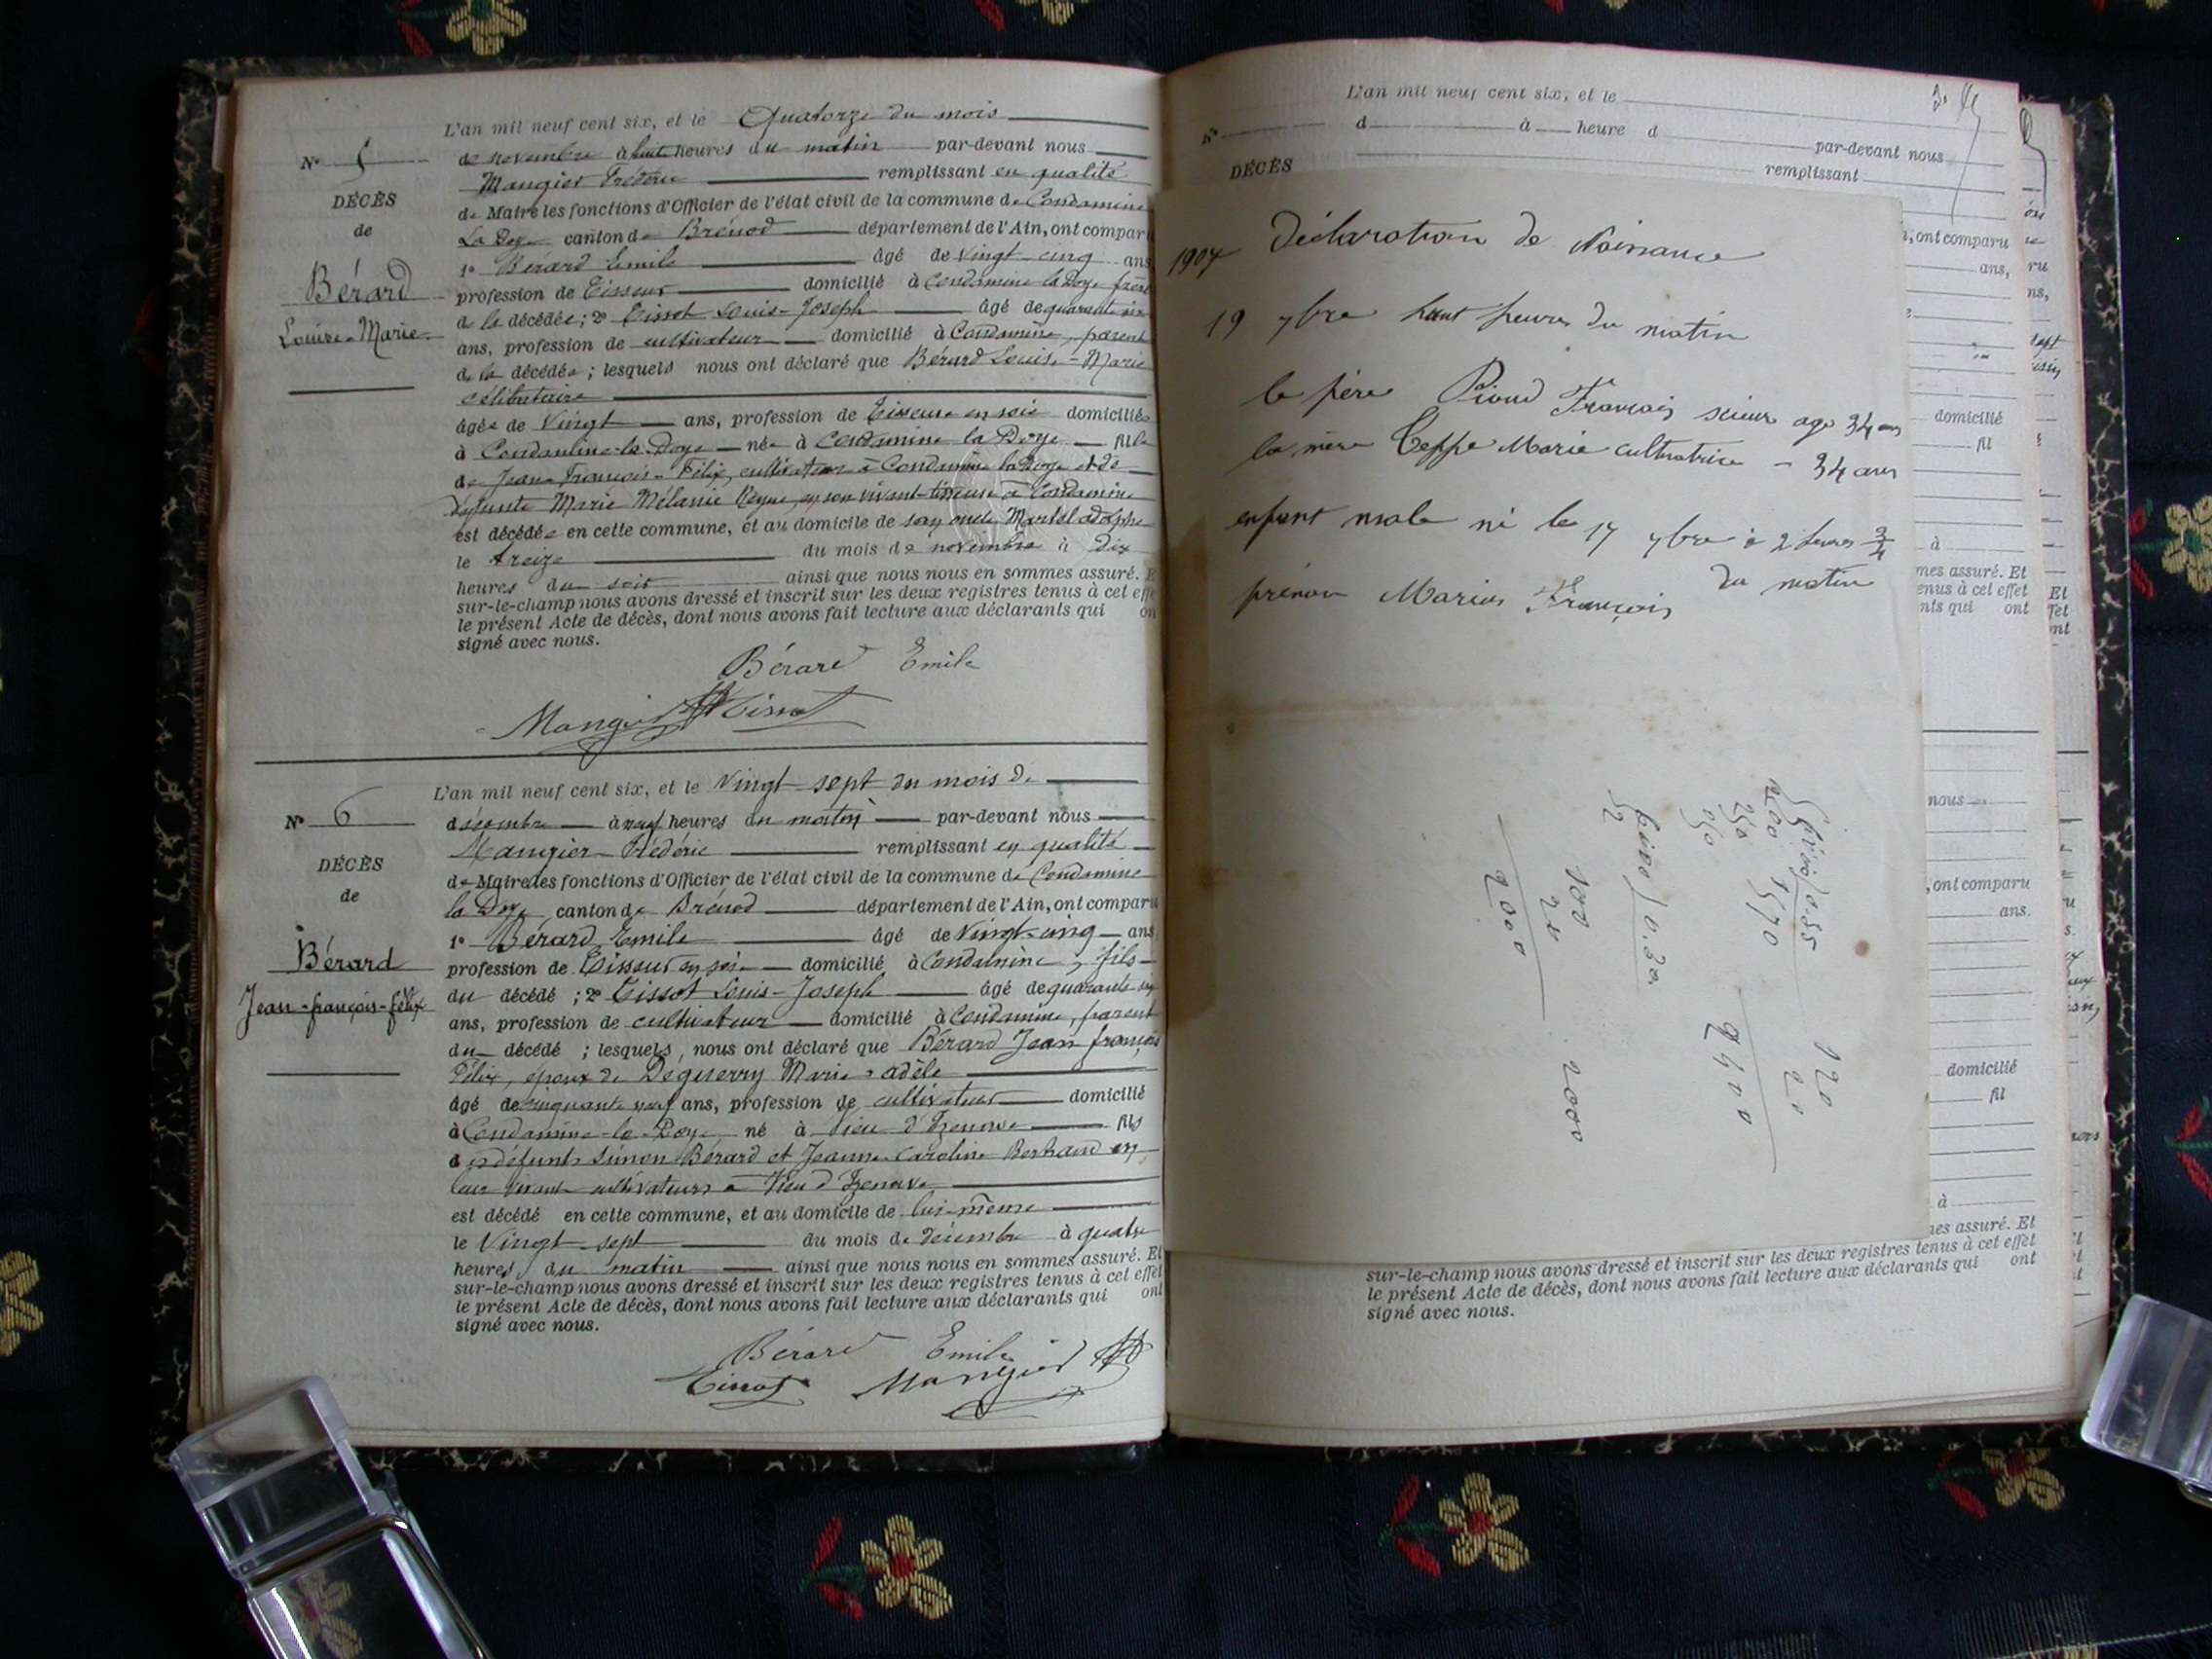 L'an mil neuf cent six, et le Quatorze du mois
de novembre à huit heures du matin par-devant nous
Mangier Frédéric remplissant en qualité
de Maire les fonctions d'Officier de l'état civil de la commune de Condamine
La Doye canton de Brénod département de l'Ain, ont comparu
1º Bérard Emile âgé de vingt-cinq ans
profession de Tisseur domicilié à Condamine la Doye frère
de la décédée; 2º Tissot Louis-Joseph âgé de quarante six
ans, profession de cultivateur domicilié à Condamine, parent
de la décédée; lesquels nous ont déclaré que Bérard Louise-Marie
célibataire
âgée de Vingt ans, profession de Tisseuse en soie domiciliée
à Condamine-la-Doye née à Condamine la Doye fille
de Jean-François-Félix, cultivateur à Condamine la Doye et de
défunte Marie Mélanie en son vivant tisseuse à Condamine
est décédée en cette commune, et au domicile de son oncle Martel adolphe
le treize du mois de novembre à Dix
heures du soir ainsi que nous nous en sommes assuré. E
sur-le-champ nous avons dressé et inscrit sur les deux registres tenus à cet effe
le présent Acte de décès, dont nous avons fait lecture aux déclarants qui on
signé avec nous.
Bérard Emile
Mangier Tissot
Nº 5
DÉCÈS
de
Bérard
Louise-Marie
L'an mil neuf cent six, et le Vingt-sept du mois de
décembre à neuf heures du matin par-devant nous
Mangier Frédéric remplissant en qualité
de Maire les fonctions d'Officier de l'état civil de la commune de Condamine
la Doye canton de Brénod département de l'Ain, ont comparu
1º Bérard Emile âgé de Vingt-cinq ans
profession de Tisseur en soie domicilié à Condamine, fils
du décédé; 2º Tissot Louis-Joseph âgé de quarante six
ans, profession de cultivateur domicilié à Condamine, parent
du décédé; lesquels, nous ont déclaré que Bérard Jean françois
Félix, époux de Deguerry Marie-adèle
âgé de cinquante neuf ans, profession de cultivateur domicilié
à Condamine-la-Doye né à Vieu d'Izenave fils
des défunts Simon Bérard et Jeanne Caroline Bertrand en
leur vivant cultivateurs à Vieu d'Izenave
est décédé en cette commune, et au domicile de lui-même
le Vingt-sept du mois de décembre à quatre
heures du matin ainsi que nous nous en sommes assuré. Et
sur-le-champ nous avons dressé et inscrit sur les deux registres tenus à cet effet
le présent Acte de décès, dont nous avons fait lecture aux déclarants qui ont
signé avec nous.
Bérard Emile
Tissot Mangier
Nº 6
DÉCÈS
de
Bérard
Jean-françois-félix
L'an mil neuf cent six, et le
Nº d à heure d par-devant nous
DÉCÈS remplissant
1907 Déclaration de Naissance
19 7bre huit heures du matin
le père Pioud François scieur age 34 ans
la mère Ceppe Marie cultivatrice - 34 ans
enfant male né le 17 7bre à 2 heures 3/4
du matin
prénom Marius François
, ont comparu
ans,
domicilié
fil
à
mes assuré. Et
enus à cet effet
nts qui ont
120
20
2400
1570
250
050
0.30
52
100
20
2000
2000
nous
, ont comparu
ans.
domicilié
fil
à
nes assuré. Et
sur-le-champ nous avons dressé et inscrit sur les deux registres tenus à cet effet
le présent Acte de décès, dont nous avons fait lecture aux déclarants qui ont
signé avec nous.